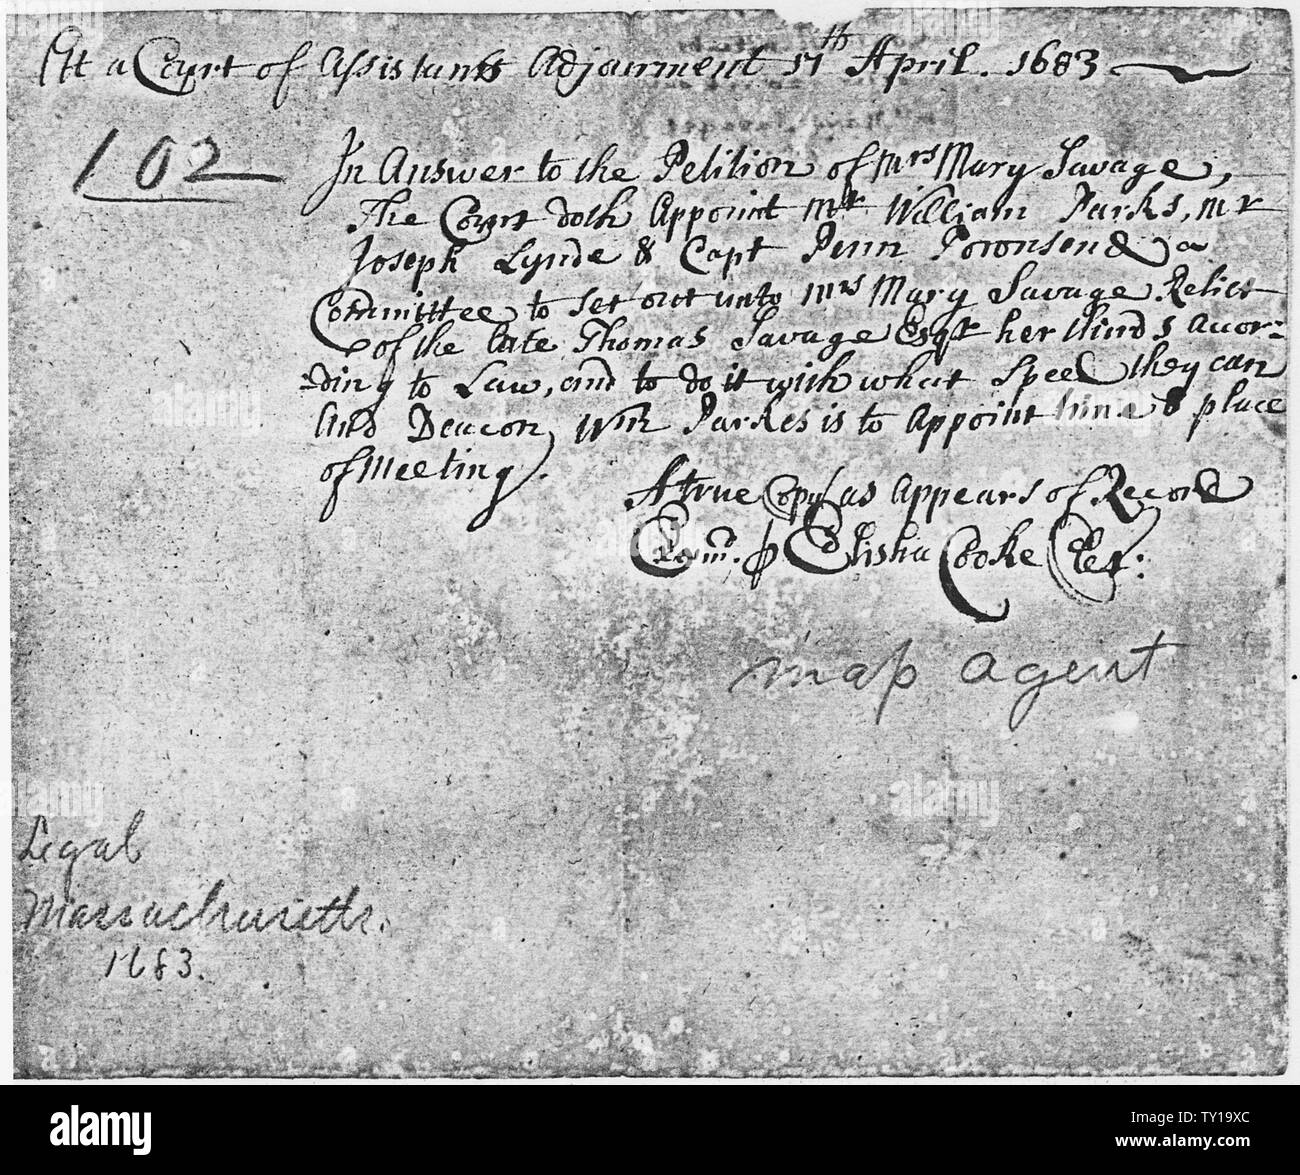 Att a Court of Assistants Adjournment 17th April. 1683
102
In Answer to the Petition of Mrs Mary Savage,
The Court doth Appoint Mr William Parks, Mr
Joseph Lynde & Capt Penn Townsend a
Committee to set out unto Mrs Mary Savage Relict
of the late Thomas Savage Esqr her thirds Accor:
ding to Law, and to do it with what Speed they can
And Deacon Wm Parkes is to Appoint time & place
of Meeting.
A true Copy as Appears of Record
Exam. p Elisha Cooke Cler:
map agent
Legal
Massachusetts.
1683.
alamy
Image ID: TY19XC
www.alamy.com